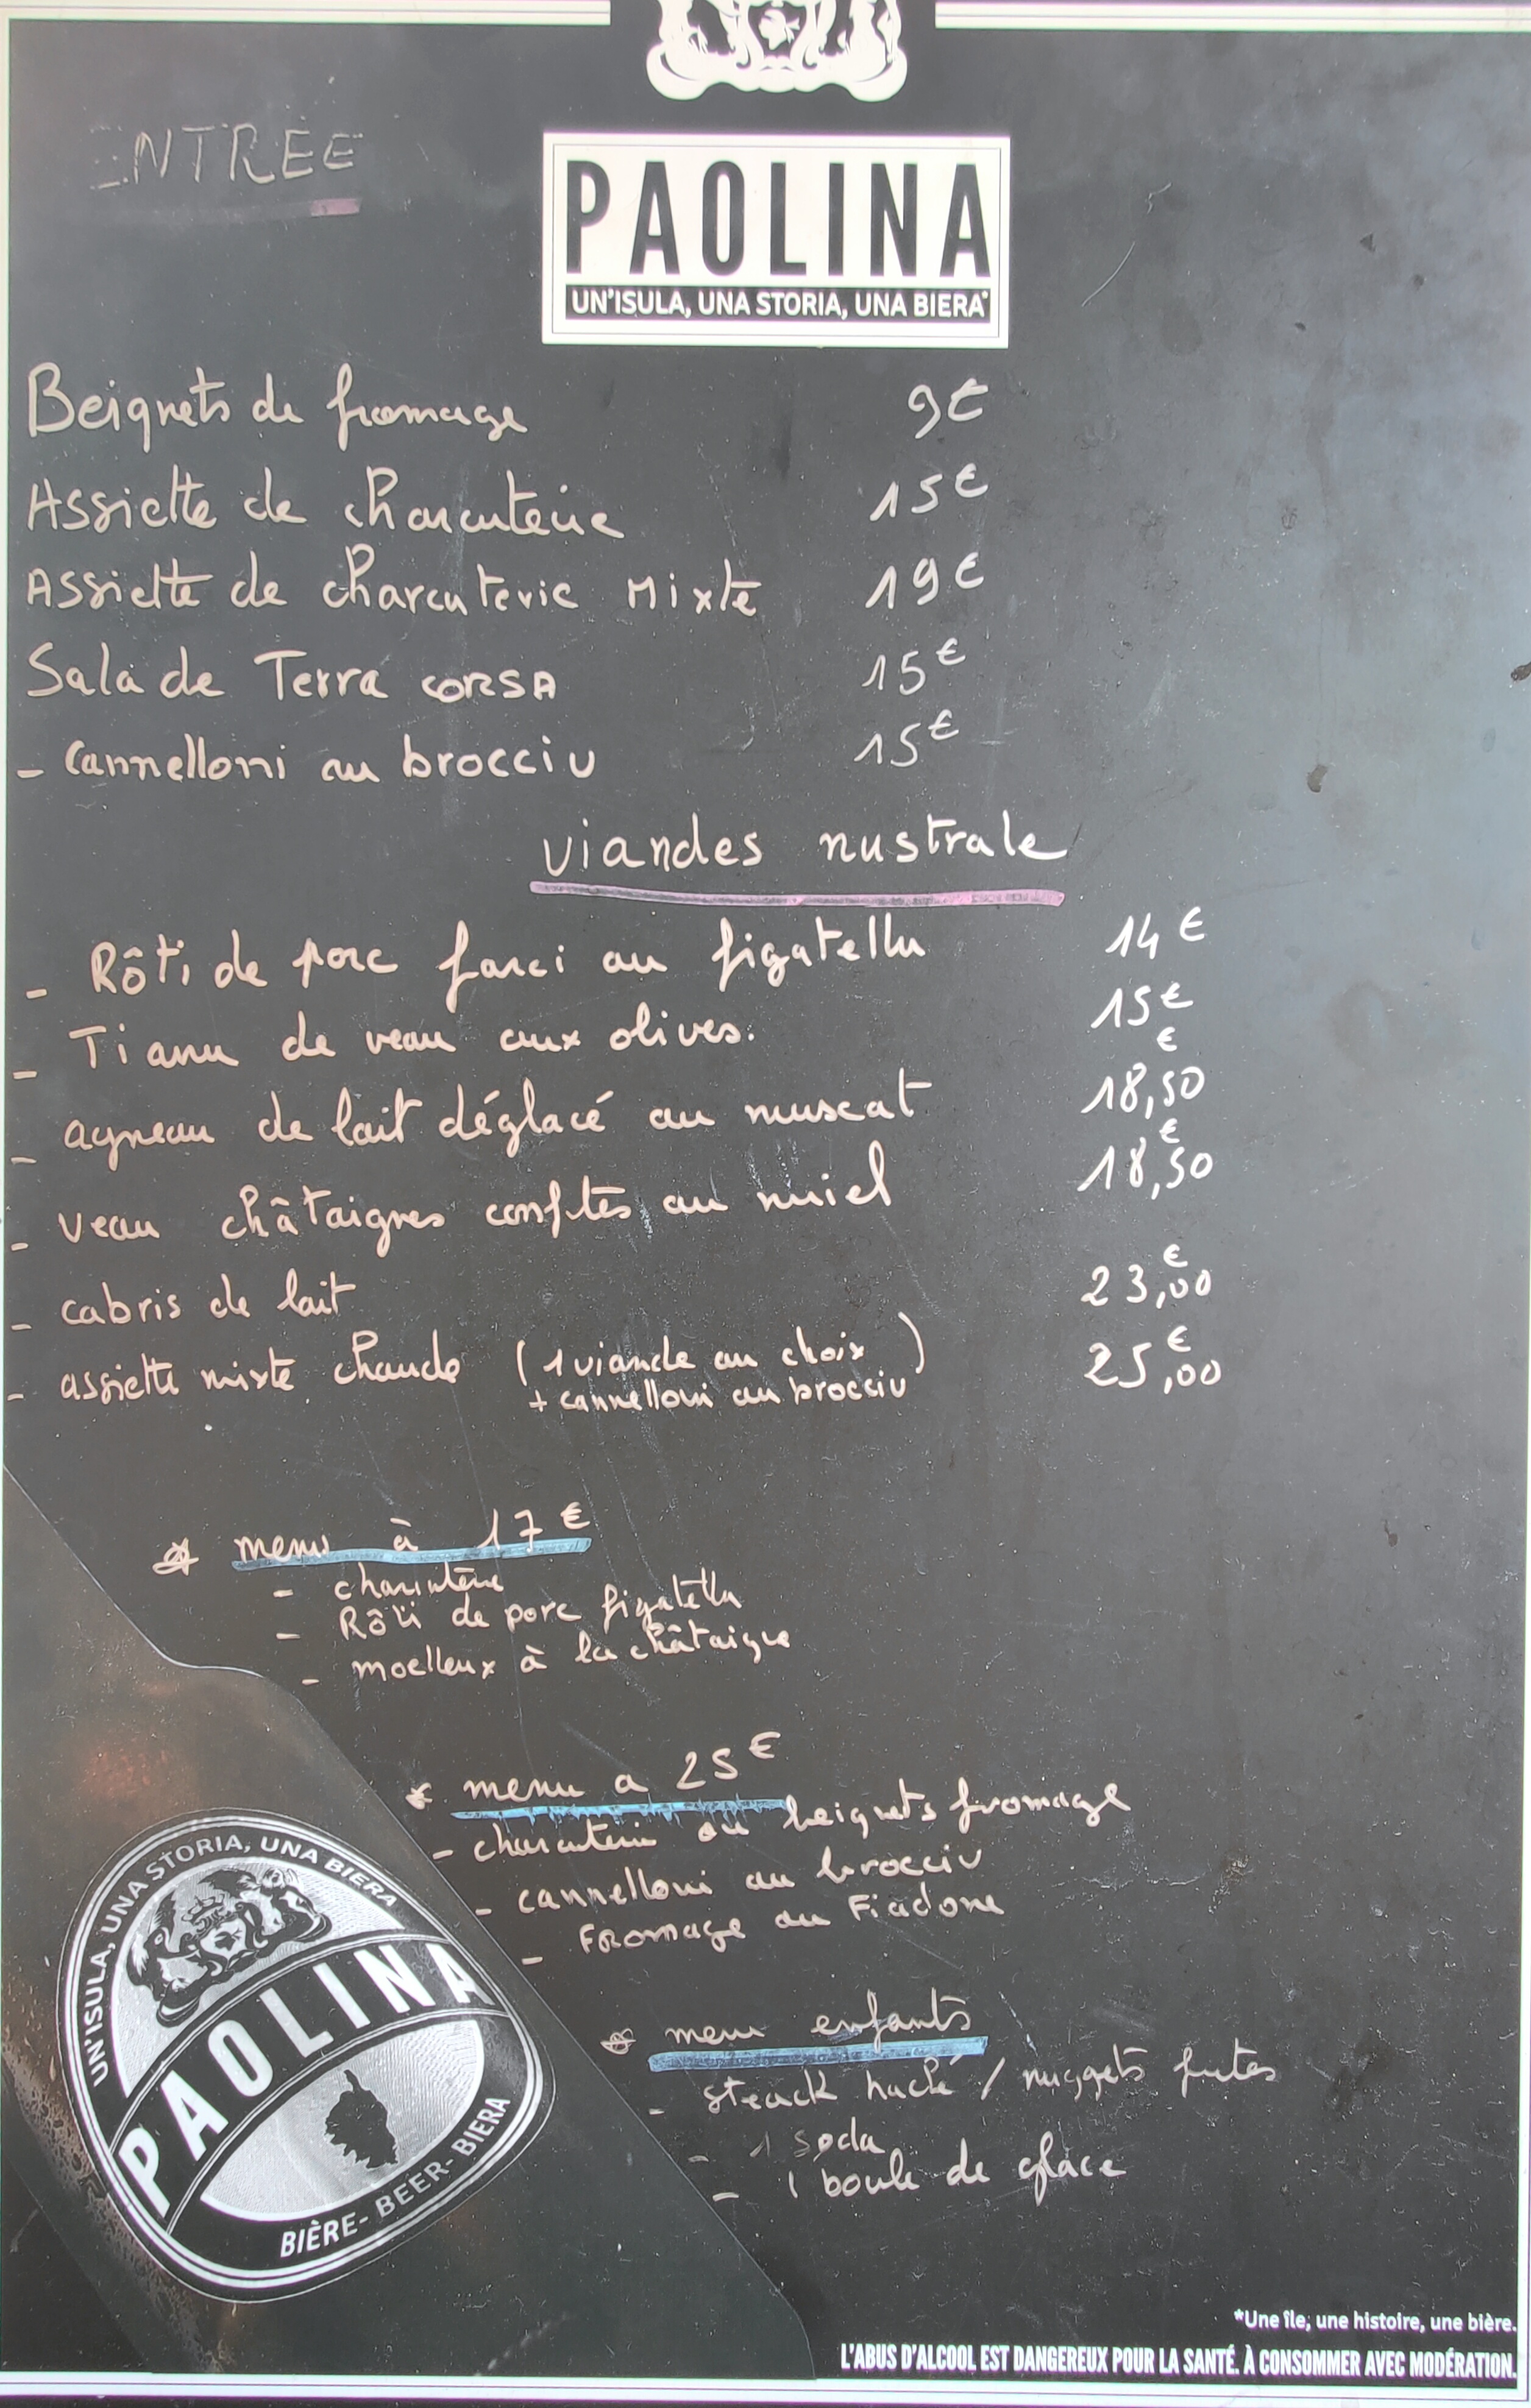 ENTRÉE
PAOLINA
UN'ISULA, UNA STORIA, UNA BIERA*
Beignets de fromage 9€
Assiette de charcuterie 15€
Assiette de charcuterie Mixte 19€
Salade Terra CORSA 15€
- Cannelloni au brocciu 15€
viandes nustrale
- Rôti de porc farci au figatellu 14€
- Tianu de veau aux olives. 15€
- agneau de lait déglacé au muscat 18,50€
- veau châtaignes confites au miel 18,50€
- cabris de lait 23,00€
- assiette mixte chaude (1 viande au choix 25,00€
+ cannelloni au brocciu)
* menu à 17€
- charcuterie
- Rôti de porc figatellu
- moelleux à la châtaigne
* menu a 25€
- charcuterie ou beignets fromage
- cannelloni au brocciu
- Fromage ou Fiadone
* menu enfants
- steack haché / nuggets frites
- 1 soda
- 1 boule de glace
UN'ISULA, UNA STORIA, UNA BIERA
PAOLINA
BIÈRE - BEER - BIERA
*Une île, une histoire, une bière.
L'ABUS D'ALCOOL EST DANGEREUX POUR LA SANTÉ. À CONSOMMER AVEC MODÉRATION.